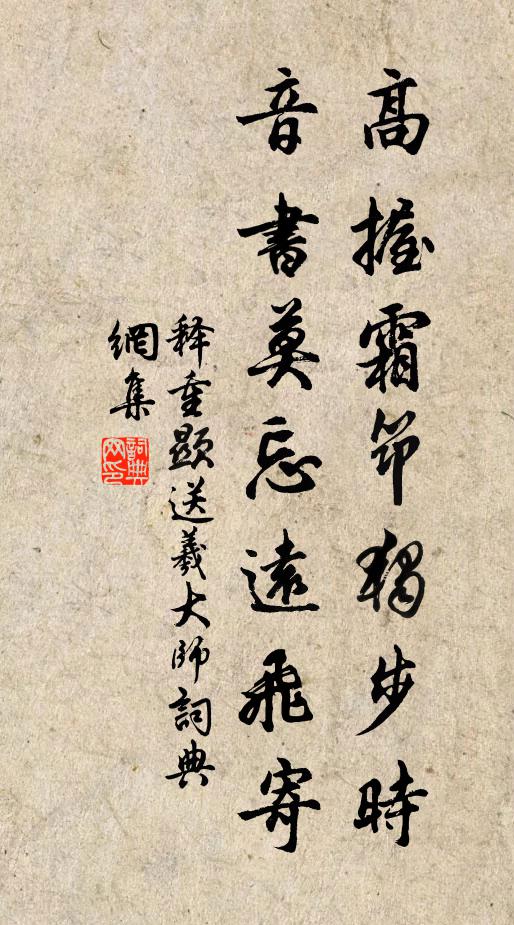 高握霜節獨步時
音書莫忘遠飛寄
释重顯送羲大師詞典
網集
詞典
网印